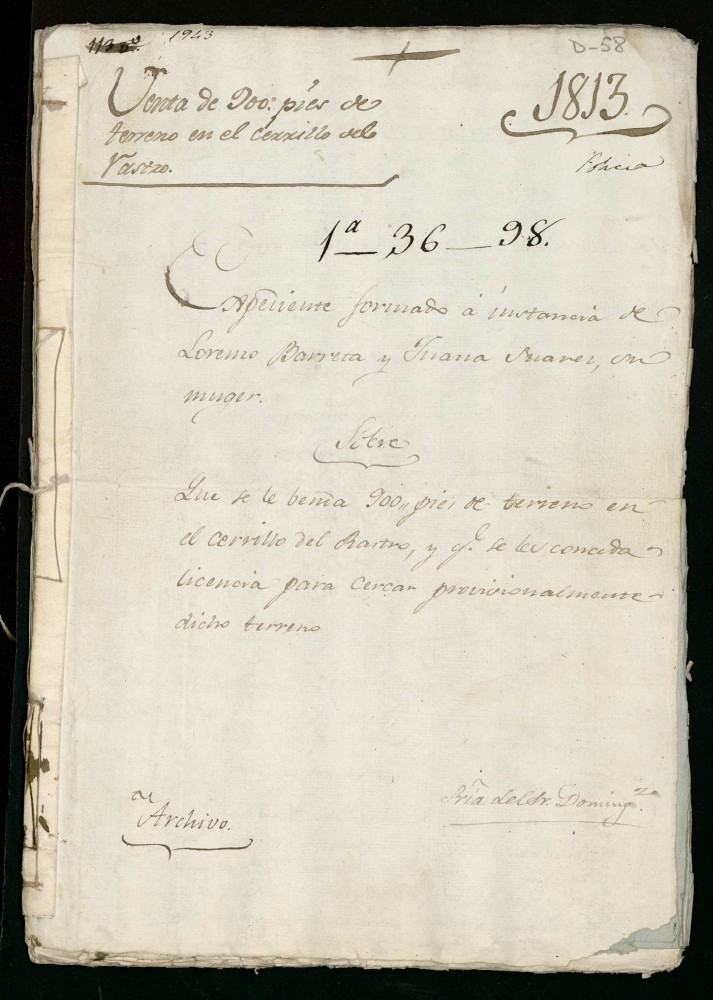 1943
D-58
Venta de 900: pies de
terreno en el cerrillo del
Rastro.
1813.
Policia
1ª-36-98.
Expediente formado á instancia de
Lorenzo Barreta y Juana Suarez, su
muger.
Sobre
Que se le benda 900,, pies de terreno en
el cerrillo del Rastro, y qe. se les conceda
licencia para cercar provisionalmente
dicho terreno
Archivo.
Sría del Sr. Domingz.